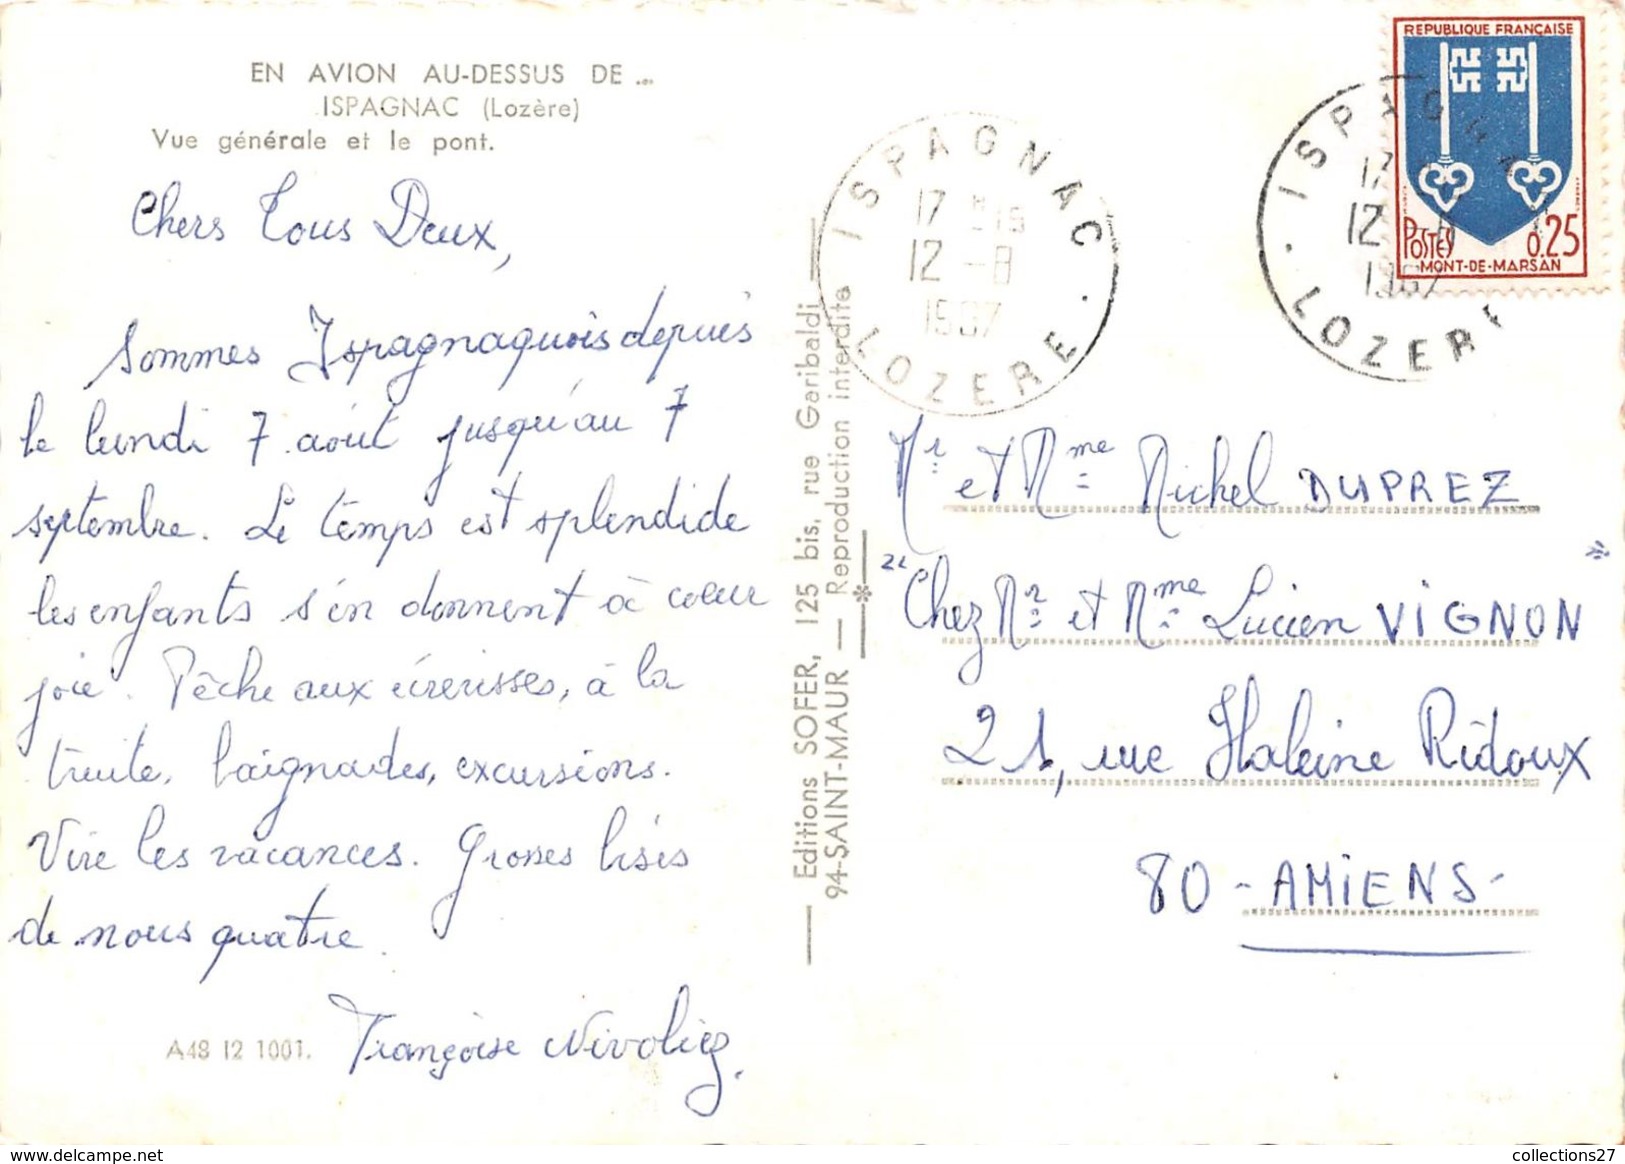 EN AVION AU-DESSUS DE ...
ISPAGNAC (Lozère)
Vue générale et le pont.
Chers Tous Deux,
Sommes Ispagnaquois depuis
le lundi 7 août jusqu'au 7
septembre. Le temps est splendide
les enfants s'en donnent à cœur
joie. Pêche aux écrevisses, à la
truite, baignades, excursions.
Vive les vacances. Grosses bises
de nous quatre.
Françoise
A48 12 1001.
Editions SOFER, 125 bis, rue Garibaldi
94-SAINT-MAUR — Reproduction interdite
ISPAGNAC
17 H 15
12 -8
1967
LOZERE
ISPAGNAC
17
12 -8
1967
LOZERE
REPUBLIQUE FRANÇAISE
POSTES 0.25
MONT-DE-MARSAN
Mr et Mme Michel DUPREZ
"Chez Mr et Mme Lucien VIGNON"
21, rue Haleine Ridoux
80 - AMIENS -
collections27